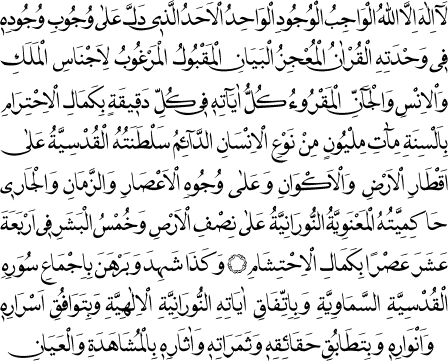 لَٓا اِلٰهَ اِلَّا اللّٰهُ الْوَاجِبُ الْوُجُودِ الْوَاحِدُ الْاَحَدُ الَّذ۪ى دَلَّ عَلٰى وُجُوبِ وُجُودِه۪
ف۪ى وَحْدَتِهِ الْقُرْاٰنُ الْمُعْجِزُ الْبَيَانِ الْمَقْبُولُ الْمَرْغُوبُ لِاَجْنَاسِ الْمَلَكِ
وَالْاِنْسِ وَالْجَٓانِّ الْمَقْرُوءُ كُلُّ اٰيَاتِه۪ ف۪ى كُلِّ دَق۪يقَةٍ بِكَمَالِ الْاِحْتِرَامِ
بِاَلْسِنَةِ مِاٰتِ مِلْيُونٍ مِنْ نَوْعِ الْاِنْسَانِ الدَّٓائِمُ سَلْطَنَتُهُ الْقُدْسِيَّةُ عَلٰى
اَقْطَارِ الْاَرْضِ وَالْاَكْوَانِ وَعَلٰى وُجُوهِ الْاَعْصَارِ وَالزَّمَانِ وَالْجَار۪ى
حَاكِمِيَّتُهُ الْمَعْنَوِيَّةُ النُّورَانِيَّةُ عَلٰى نِصْفِ الْاَرْضِ وَخُمْسِ الْبَشَرِ ف۪ى اَرْبَعَةَ
عَشَرَ عَصْرًا بِكَمَالِ الْاِحْتِشَامِ ۞ وَكَذَا شَهِدَ وَبَرْهَنَ بِاِجْمَاعِ سُوَرِهِ
الْقُدْسِيَّةِ السَّمَاوِيَّةِ وَبِاتِّفَاقِ اٰيَاتِهِ النُّورَانِيَّةِ الْاِلٰهِيَّةِ وَبِتَوَافُقِ اَسْرَارِه۪
وَاَنْوَارِه۪ وَبِتَطَابُقِ حَقَائِقِه۪ وَثَمَرَاتِه۪ وَاٰثَارِه۪ بِالْمُشَاهَدَةِ وَالْعَيَانِ